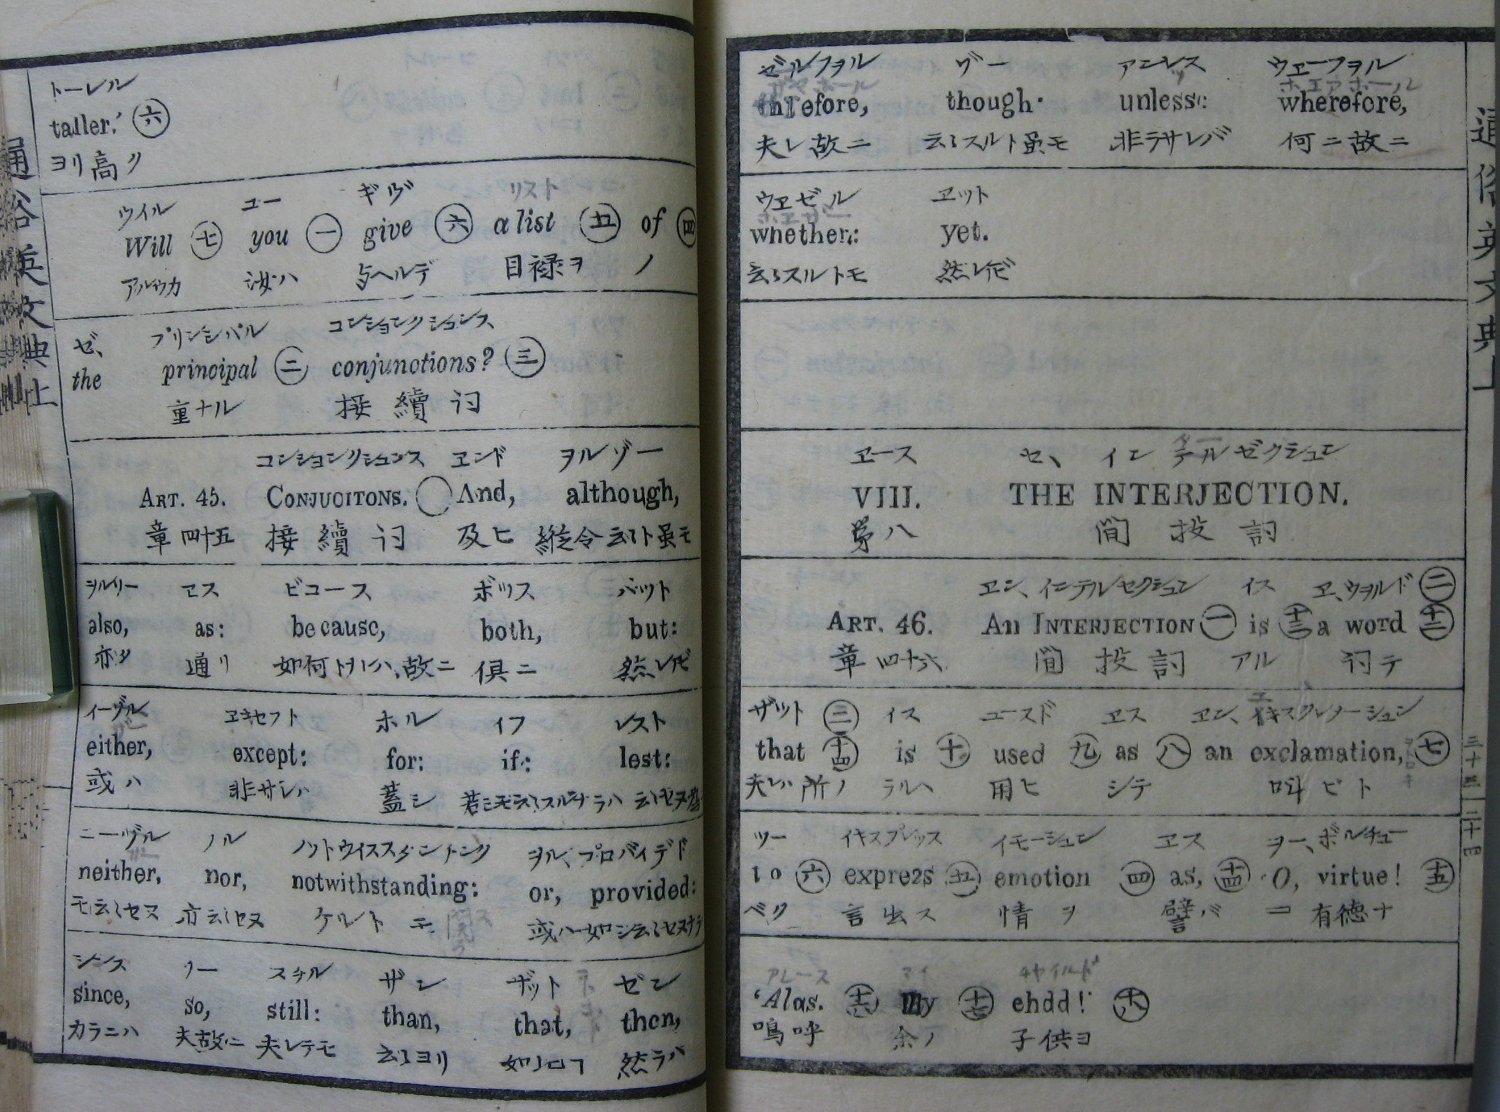 トールル
taller.' 六
ヨリ高ク
ウイル ユー ギヴ リスト
Will 七 you 一 give 六 a list 五 of 四
アルウカ 汝ハ 与ヘルデ 目禄ヲ ノ
ゼ、 プリンシパル コンションクションス
the principal 二 conjunctions? 三
重ナル 接續詞
コンションクションス エンド ヲルゾー
ART. 45. CONJUCITONS. And, although,
章四十五 接續詞 及ヒ 縦令云フト虽モ
ヲルソー エス ビコース ボツス バット
also, as: because, both, but:
亦タ 通リ 故ニ 倶ニ 然レ𪜈
イーヅル ヱキセフト ホル イフ レスト
either, except: for: if: lest:
或ハ 非サレハ 蓋シ
ニーヅル ノル ノットウイススタンドング ヲル、プロバイデド
neither, nor, notwithstanding: or, provided:
ケルト モ
シンス ソー スチル ザン ザット ゼン
since, so, still: than, that, then,
カラニハ 夫故ニ 夫レテモ 云フヨリ 然ラバ
通俗英文典上
ゼルフヲル ヅー アンレス ウエーフヲル
therefore, though· unless: wherefore,
夫レ故ニ 云フスルト虽モ 非ラサレバ 何ニ故ニ
ウエゼル エット
whether: yet.
云フスルトモ 然レ𪜈
エース ゼ、インテルゼクション
VIII. THE INTERJECTION.
第八 間投詞
エン、インテルゼクション イス エ、ウヲルド 二
ART. 46. An INTERJECTION 一 is 十三 a word 十二
章四十六 間投詞 アル 詞テ
ザット 三 イス ユースド エス エン、イキスクレメーション
that 十四 is 十 used 九 as 八 an exclamation, 七
所ノ ラルヘ 用ヒ シテ 叫ビト
ツー イキスプレッス イモーション エス ヲー、ボルチュー
to 六 expre2s 五 emotion 四 as, 十四 O, virtue! 十五
ベク 言出ス 情ヲ 譬バ 有德ナ
アレース マイ チヤイルド
'Alas. 十六 my 十七 ehdd! 十八
鳴呼 余ノ 子供ヨ
通俗英文典上
三十三 二十四